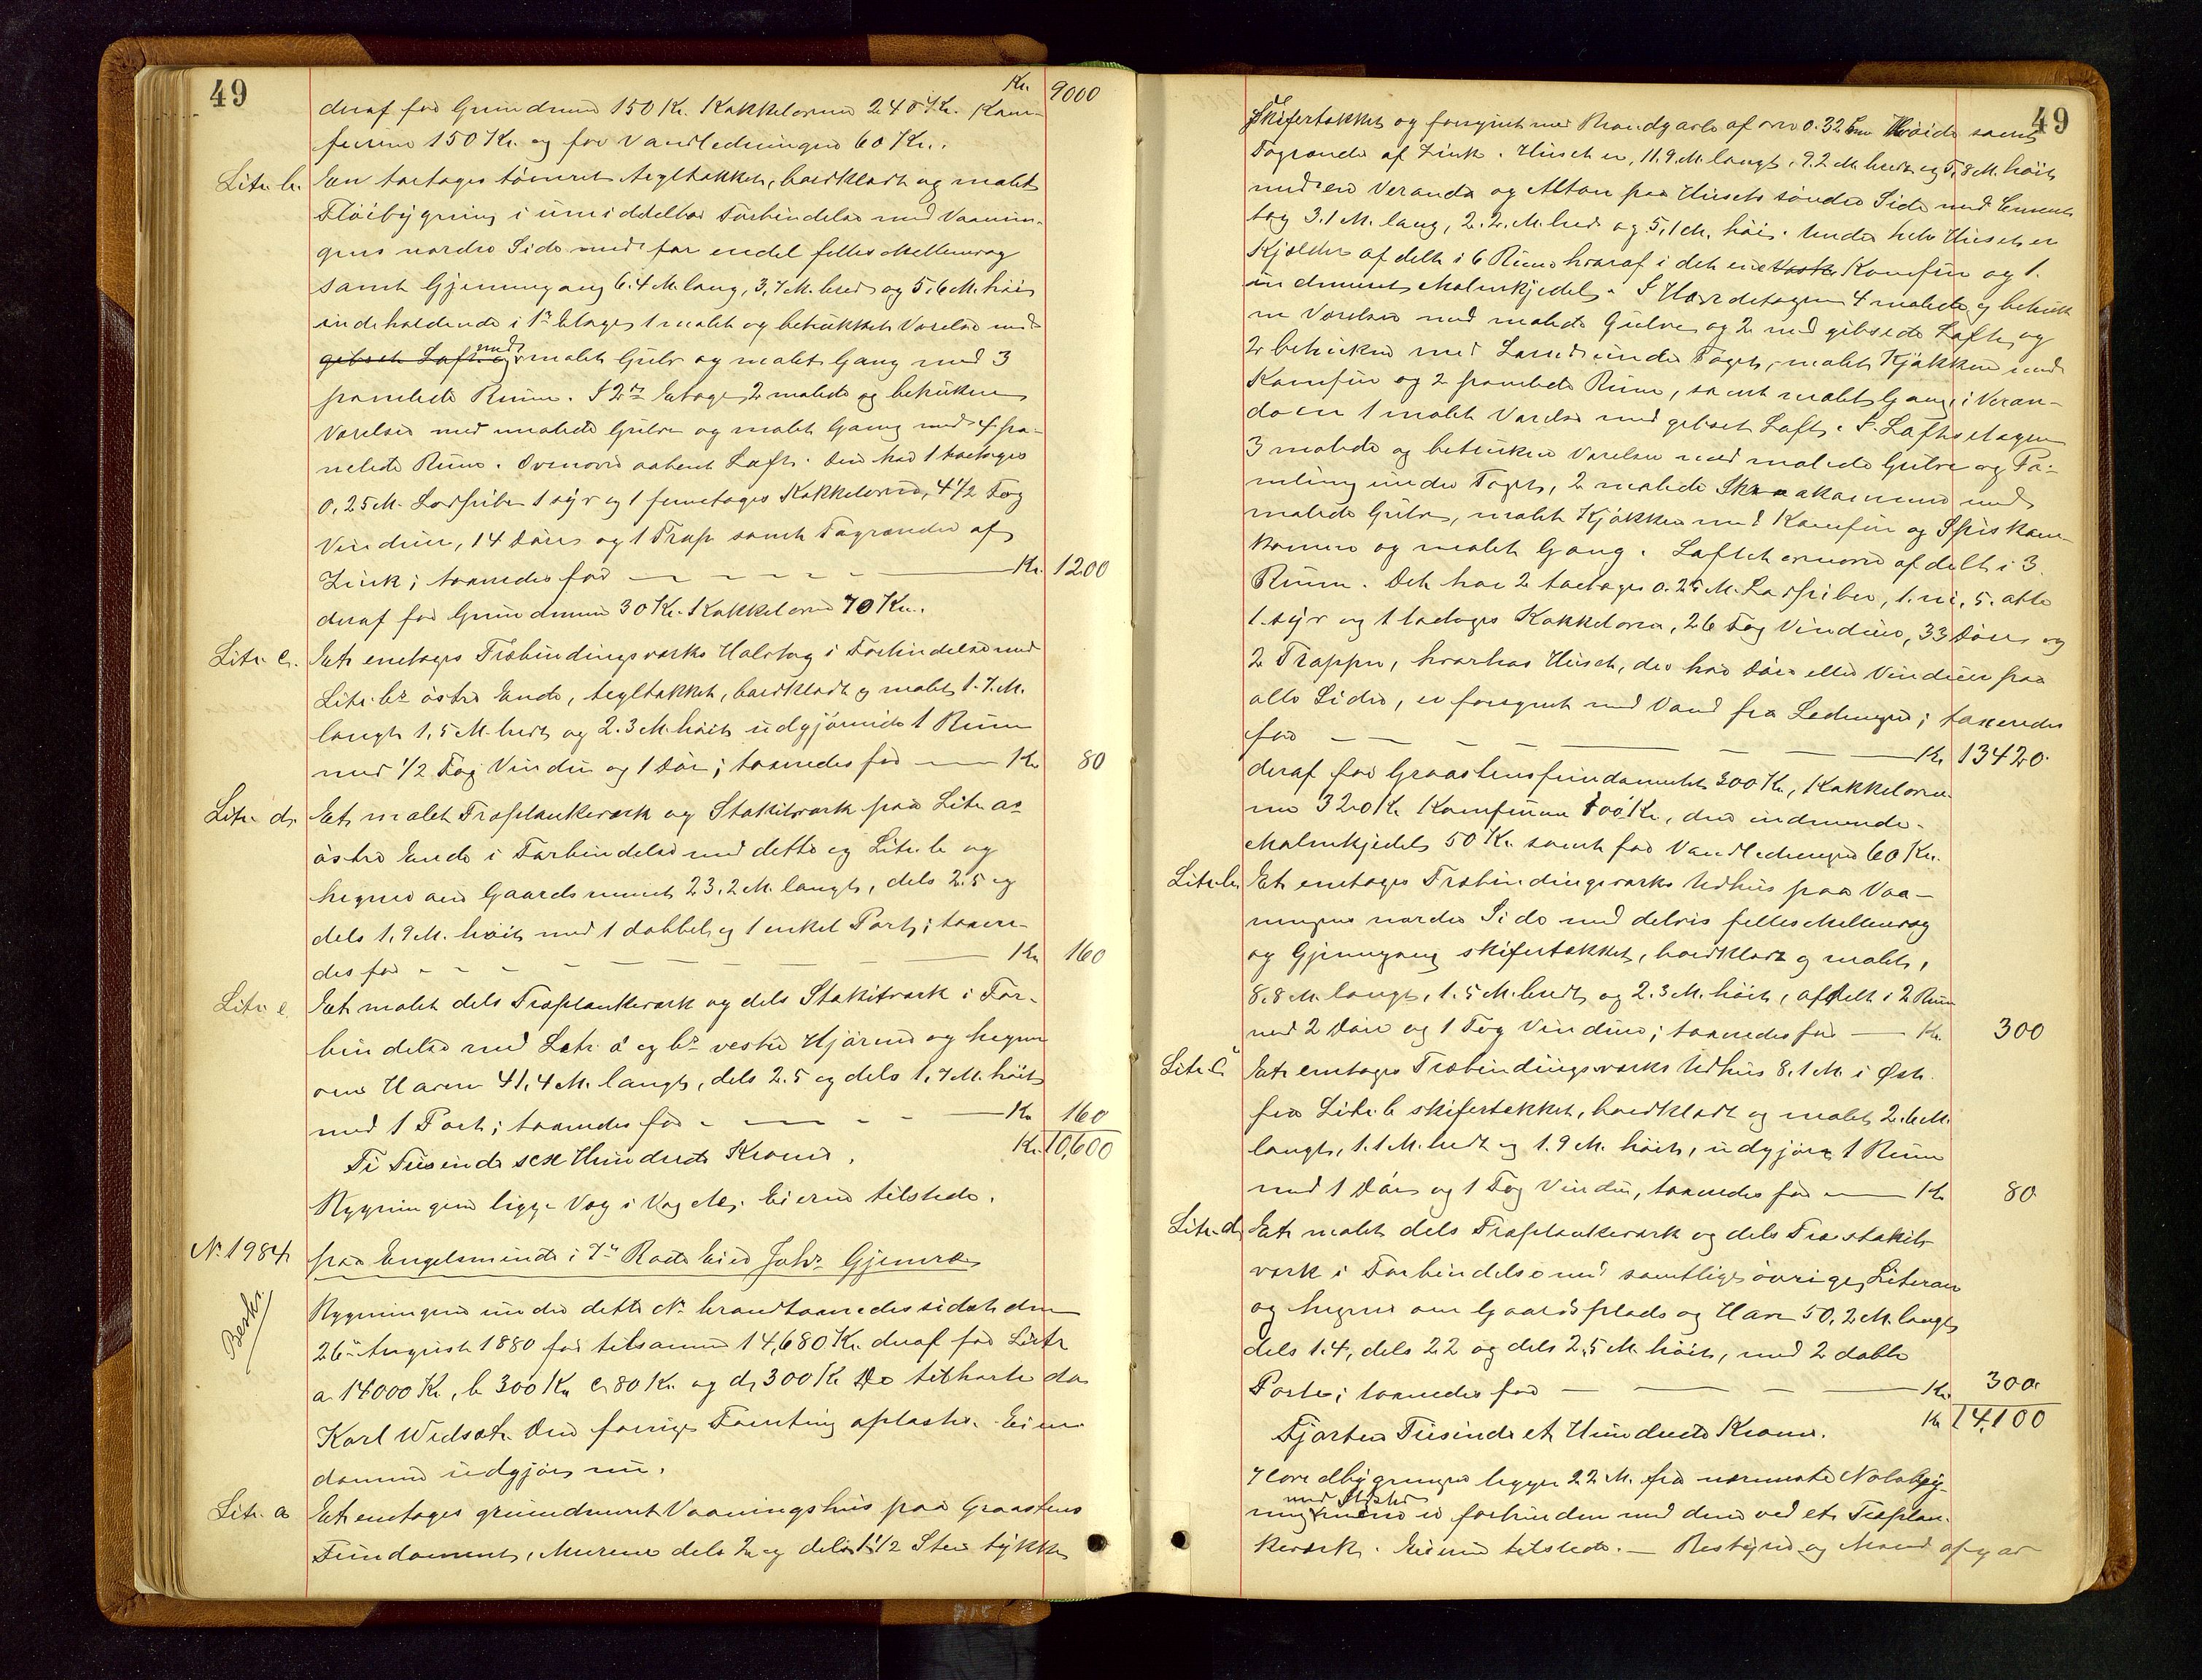 49
Kr. 9000
deraf for Grundmur 150 Kr. Kakkelovne 240 Kr. Kom-
furerne 150 Kr. og for Vandledningen 60 Kr.
Litr. b. Een toetages tømret tegltækket, bordklædt og malet
Fløibygning i umiddelbar Forbindelse med Vaanin-
gens nordre Side med for endel felles Mellemvæg
samt Gjennemgang 6.4 M. lang, 3,7 M. bred og 5,6 M. høi
indeholdende i 1ste Etage 1 malet og betrukket Værelse med
gibset Loft og med malet Gulv og malet Gang med 3
panelede Rum. I 2den Etage 2 malede og betrukne
Værelser med malede Gulve og malet Gang med 4 pa-
nelede Rum. Ovenover aabent Loft. Den har 1 toetages
0,25 M. Lodpibe 1 syv og 1 femetages Kakkelovne, 4 1/2 Fag
Vinduer, 14 Døre og 1 Trap samt Tagrender af
Zink; taxeredes for Kr. 1200
deraf for Grundmur 30 Kr. Kakkelovne 70 Kr.
Litr. c. Et enetages Træbindingsværks Halvtag i Forbindelse med
Litr. bs østre Ende, tegltækket, bordklædt og malet 1.7 M.
langt 1,5 M. bredt og 2.3 M. høit udgjørende 1 Rum
med 1/2 Fag Vindu og 1 Dør; taxeredes for Kr. 80
Litr. d. Et malet Træplankeværk og Stakitværk paa Litr. as
østre Ende i Forbindelse med dette og Litr. b og
hegner om Gaardsrummet 23,2 M. langt, dels 2.5 og
dels 1,9 M. høit med 1 dobbelt og 1 enkel Port; taxere-
des for Kr. 160
Litr. e. Et malet dels Træplankeværk og dels Stakitværk i For-
bindelse med Litr. a og bs vestre Hjørne og hegner
om Haven 41,4 M. langt, dels 2.5 og dels 1,7 M. høit
med 1 Port; taxeredes for Kr. 160
Ti Tusinde sex Hundrede Kroner. Kr. 10,600
Bygningerne ligge Væg i Væg Eierne tilstede.
No. 1984 paa Engelsminde i 7de Rode Eier Johs. Gjemre
Beskr.
Bygningerne under dette No. brandtaxeredes sidst den
26de August 1880 for tilsammen 14,680 Kr. deraf for Litr
a 14000 Kr, b 300 Kr c 80 Kr. og d 300 Kr De tilhørte da
Karl Widsæt. Den forrige Taxering oplæstes. Eien-
domme udgjør nu.
Litr. a Et enetages grundmuret Vaaningshus paa Graastens
Fundament, Murene dels 2 og dels 1 1/2 Sten tykke
49
Skifertækket og forsynet med Brandgavle af over 0.32 M Høide samt
Tagrender af Zink. Huset er, 11.9 M. langt, 9.2 M. bredt og 5,8 M. høit
med en Veranda og Altan paa Husets søndre Side med Cement
tag 3.1 M. lang, 2.2 M. bred og 5,1 M. høi. Under hele Huset er
Kjælder afdelt i 6 Rum hvoraf i det ene Vaske Komfur og 1.
indmuret Malmkjedel. I Hovedetagen 4 malede og betruk-
ne Værelser med malede Gulve og 2 med gibsede Lofte og
2 betrukne med Lærred under Taget, malet Kjøkken med
Komfur og 2 panelede Rum, samt malet Gang i Veran-
daen 1 malet Værelse med gibset Loft. I Loftsetagen
3 malede og betrukne Værelser med malede Gulve og Pa-
neling under Taget, 2 malede Skraakamre med
malede Gulve, malet Kjøkken med Komfur og Spiskam-
kammer og malet Gang. Loftet ovenover afdelt i 3
Rum. Det har 2 toetages 0.25 M. Lodpiber, 1. ni, 5. otte
1. syv og 1 toetages Kakkelovn, 26 Fag Vinduer, 33 Døre og
2 Trapper, hvorhos Huset, der har Døre eller Vinduer paa
alle Sider, er forsynet med Vand fra Ledningen; taxeredes
for Kr 13420.
deraf for Graastensfundamentet 300 Kr, Kakkelovne-
ne 320 Kr Komfurene 100 Kr, den indmurede-
Malmkjedel 50 Kr. samt for Vandledningen 60 Kr.
Litr. b. Et enetages Træbindingsværks Udhus paa Vaa-
ningens nordre Side med delvis felles Mellemvæg
og Gjennemgang skifertækket, bordklædt og malet,
8,8 M. langt, 1.5 M. bredt og 2.3 M. høit, afdelt i 2 Rum
med 2 Døre og 1 Fag Vinduer; taxeredes for Kr. 300
Litr. c Et enetages Træbindingsværks Udhus 8,1 M. i Øst.
fra Litr. b skifertækket, bordklædt og malet 2.6 M.
langt, 1.1 M. bredt og 1.9 M. høit, udgjør 1 Rum
med 1 Dør og 1 Fag Vindu, taxeredes for Kr 80
Litr. d. Et malet dels Træplankeværk og dels Træstakit-
værk i Forbindelse med samtlige øvrige Literaer
og hegner om Gaardsplads og Have 50,2 M. langt
dels 1.4, dels 2.2 og dels 2.5 M. høit, med 2 doble
Porte; taxeredes for Kr. 300
Fjorten Tusinde et Hundrede Kroner. Kr 14,100
Hovedbygningen ligger 22 M. fra nærmeste Nabobyg-
ning med Udhus er forbunden med den ved et Træplan-
keværk. Eieren tilstede. — Bestyrer og Mænd afgav